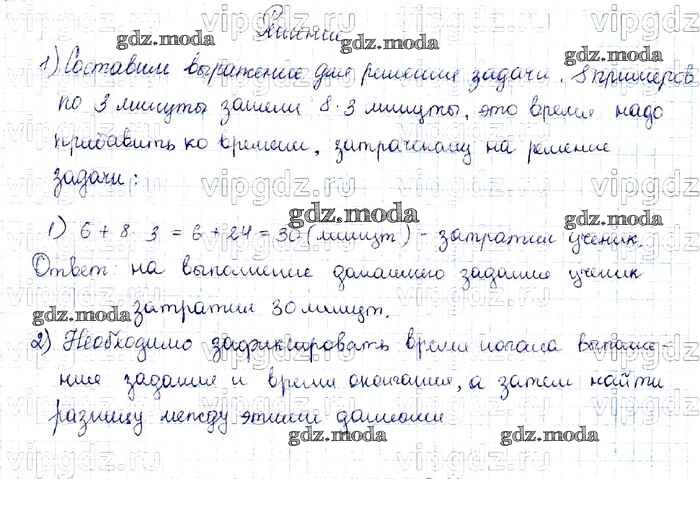 Решение
1) Составим выражение для решения задачи. 8 примеров
по 3 минуты заняли 8·3 минуты, это время надо
прибавить ко времени, затраченому на решение
задачи:
1) 6+8·3=6+24=30 (минут) - затратил ученик.
Ответ: на выполнение домашнего задания ученик
затратил 30 минут.
2) Необходимо зафиксировать время начала выполне-
ния задания и время окончания, а затем найти
разницу между этими данными
gdz.moda
gdz.moda
gdz.moda
gdz.moda
gdz.moda
gdz.moda
gdz.moda
vipgdz.ru
vipgdz.ru
vipgdz.ru
vipgdz.ru